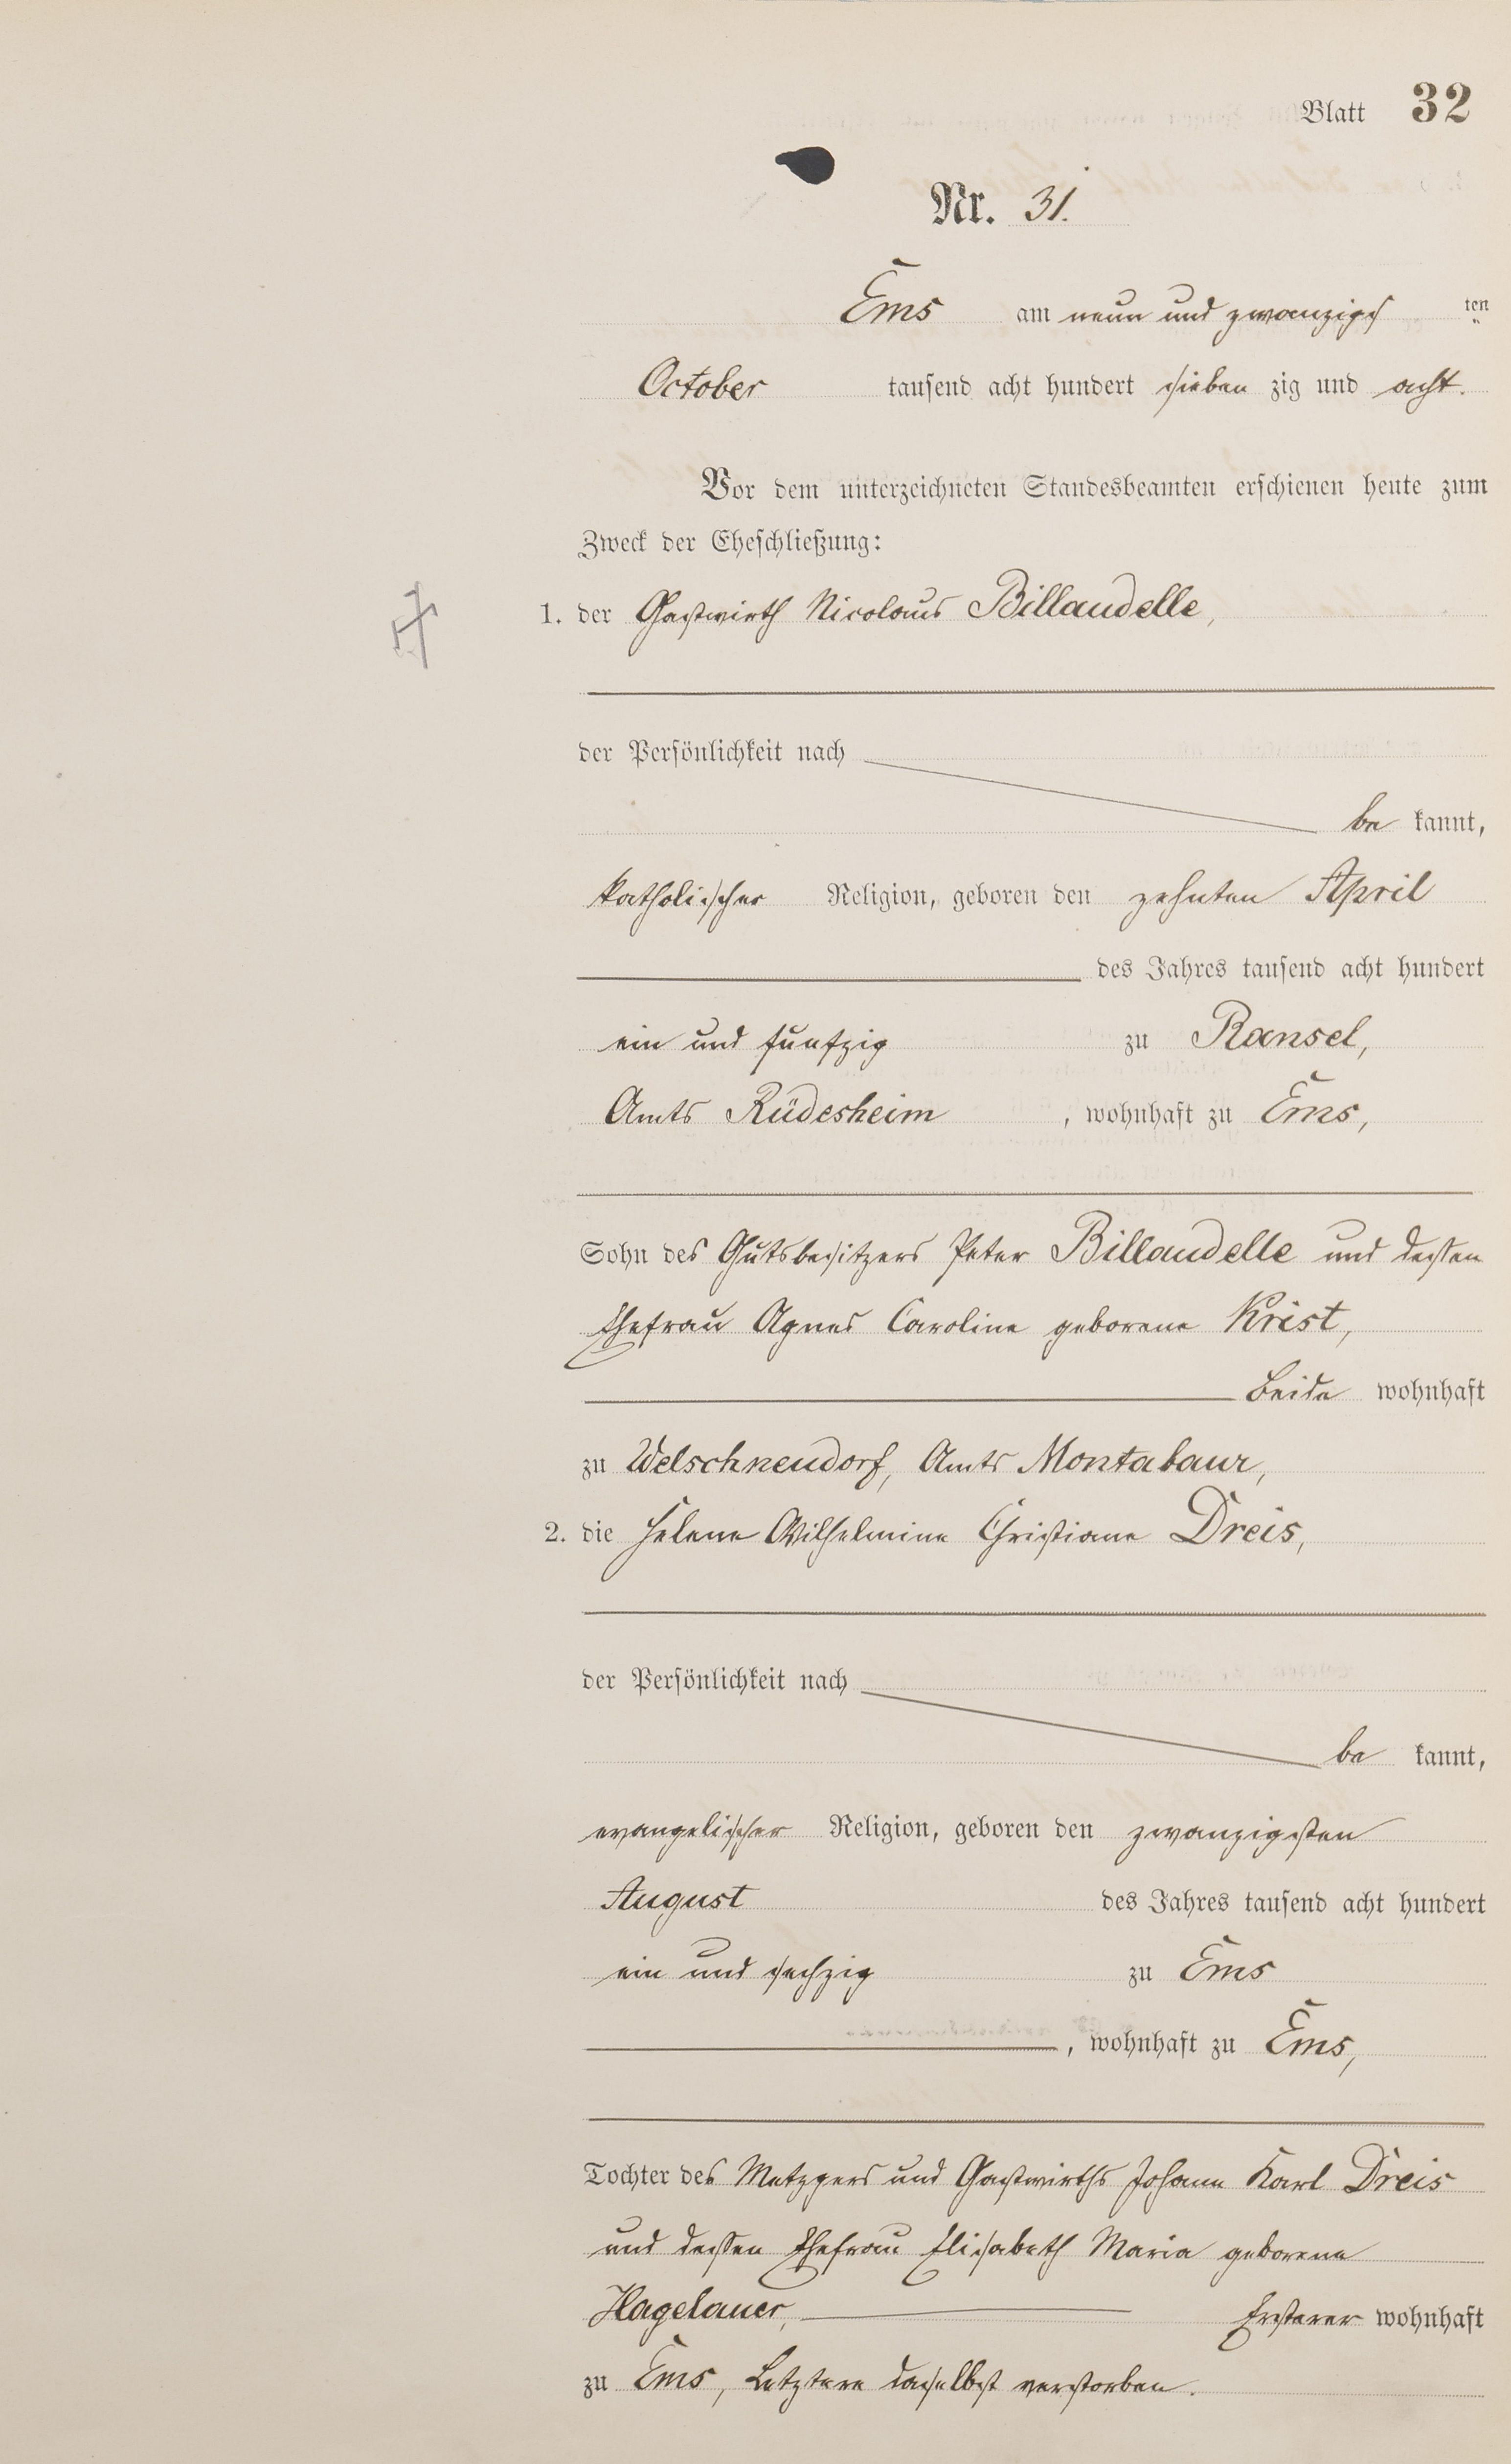 Blatt 32
Nr. 31.
Ems am neun und zwanzigs ten
October tausend acht hundert sieben zig und acht.
Vor dem unterzeichneten Standesbeamten erschienen heute zum
Zweck der Eheschließung:
1. der Gastwirth Nicolaus Billaudelle,
der Persönlichkeit nach
be kannt,
katholischer Religion, geboren den zehnten April
des Jahres tausend acht hundert
ein und funfzig zu Ransel,
Amts Rüdesheim , wohnhaft zu Ems,
Sohn des Gutsbesitzers Peter Billaudelle und dessen
Ehefrau Agnes Caroline geborene Krist,
Beide wohnhaft
zu Welschneudorf, Amts Montabaur,
2. die Helene Wilhelmine Christiane Dreis,
der Persönlichkeit nach
be kannt,
evangelischer Religion, geboren den zwanzigsten
August des Jahres tausend acht hundert
ein und sechzig zu Ems
, wohnhaft zu Ems,
Tochter des Metzgers und Gastwirths Johann Karl Dreis
und dessen Ehefrau Elisabeth Maria geborene
Hagelauer, Ersterer wohnhaft
zu Ems, Letztere daselbst verstorben.